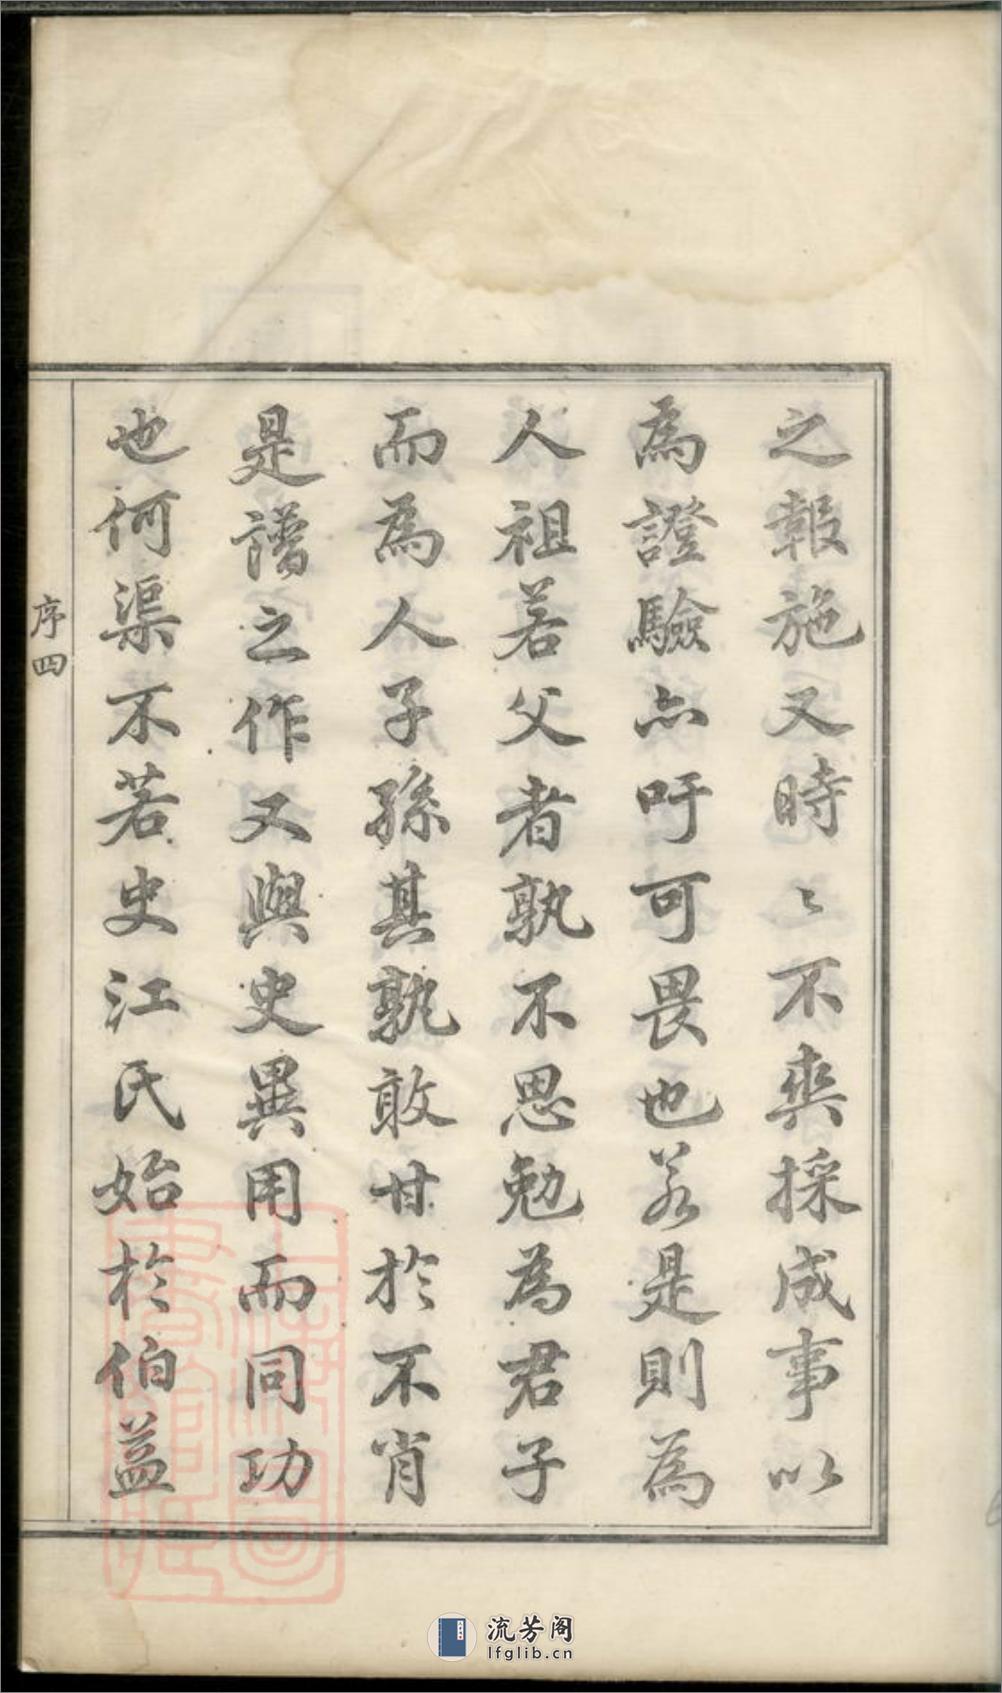 之報施又時〻不爽採成事以
為證驗亦吁可畏也若是則為
人祖若父者孰不思勉為君子
而為人子孫其孰敢甘於不肖
是譜之作又與史異用而同功
也何渠不若史江氏始於伯益
序四
上海圖書館藏
流芳阁
lfglib.cn